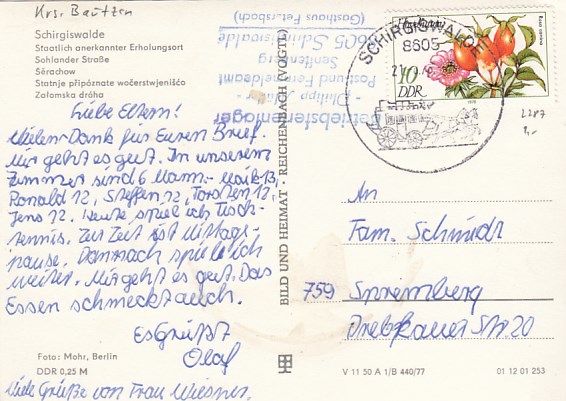 Krs. Bautzen
Schirgiswalde
Staatlich anerkannter Erholungsort
Sohlander Straße
Šěrachow
Statnje připóznate wočerstwjenišćo
Załomska dróha
Liebe Eltern!
Vielen Dank für Euren Brief.
Mir geht es gut. In unserem
Zimmer sind 6 Mann - Maik 13,
Ronald 12, Steffen 12, Torsten 12,
Jens 12. Heute spiel ich Tisch-
tennis. Zur Zeit ist Mittags-
pause. Dannach spiele ich
weiter. Mir geht es gut. Das
Essen schmeckt auch.
Es Grüßt
Olaf
Viele Grüße von Frau Wiesner.
Foto: Mohr, Berlin
DDR 0,25 M
BILD UND HEIMAT · REICHENBACH (VOGTL)
Betriebsferienlager
Post und Fernmeldeamt
Senftenberg
8605 Schirgiswalde
(Gasthaus Petersbach)
SCHIRGISWALDE
8605
10
DDR
Rosa canina
1978
2287
An
Fam. Schmidt
759 Spremberg
Drebkauer Str 20
V 11 50 A 1/B 440/77
01 12 01 253